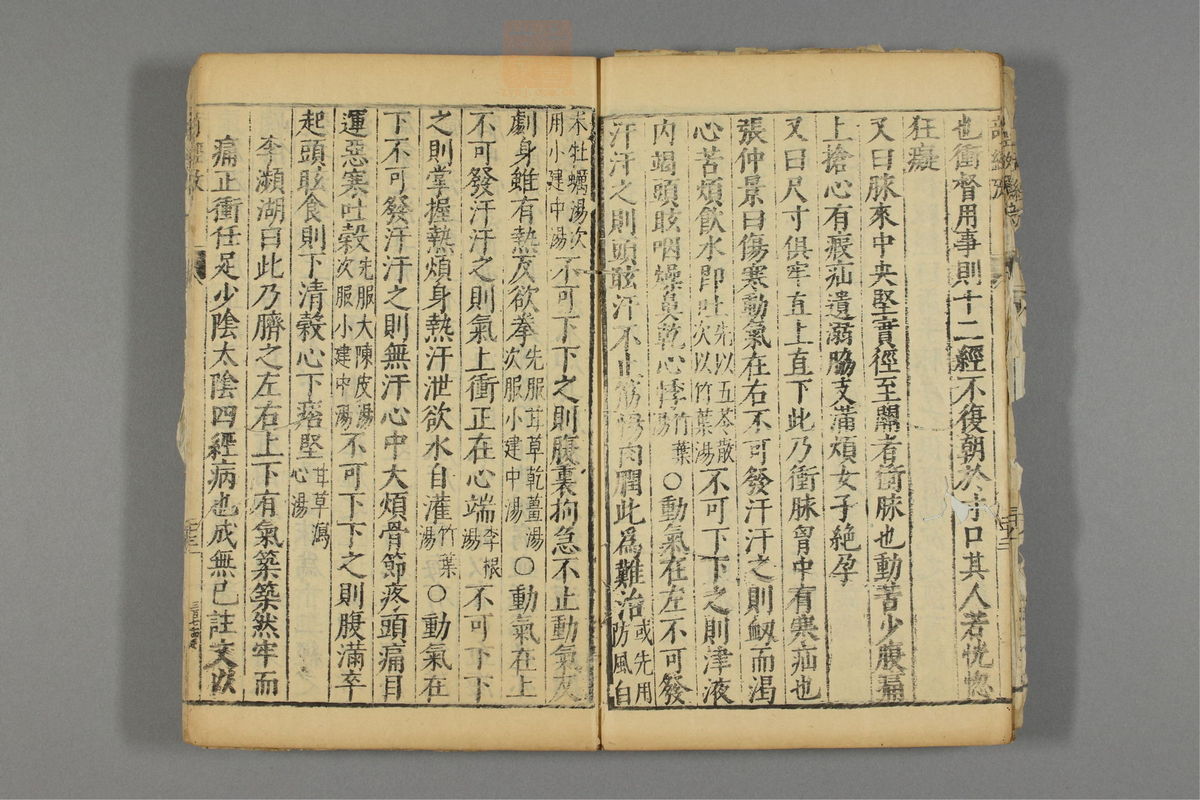 也衝督用事則十二經不復朝於寸口其人若恍惚
狂癡
又曰脉來中央堅實徑至關者衝脉也動苦少腹痛
上搶心有瘕疝遺溺脇支滿煩女子絶孕
又曰尺寸俱牢直上直下此乃衝脉胷中有寒疝也
張仲景曰傷寒動氣在右不可發汗汗之則衂而渴
心苦煩飲水即吐先以五苓散次以竹葉湯不可下下之則津液
内竭頭眩咽燥鼻乾心悸竹葉湯○動氣在左不可發
汗汗之則頭眩汗不止筋惕肉瞤此爲難治或先用防風自
术牡蠣湯次用小建中湯不可下下之則腹裏拘急不止動氣反
劇身雖有熱反欲拳先服甘草乾薑湯次服小建中湯○動氣在上
不可發汗汗之則氣上衝正在心端李根湯不可下下
之則掌握熱煩身熱汗泄欲水自灌竹葉湯○動氣在
下不可發汗汗之則無汗心中大煩骨節疼頭痛目
運惡寒吐穀先服大陳皮湯次服小建中湯不可下下之則腹滿卒
起頭眩食則下清穀心下痞堅甘草瀉心湯
李瀕湖曰此乃臍之左右上下有氣築築然牢而
痛正衝任足少陰太陰四經病也成無己註文以